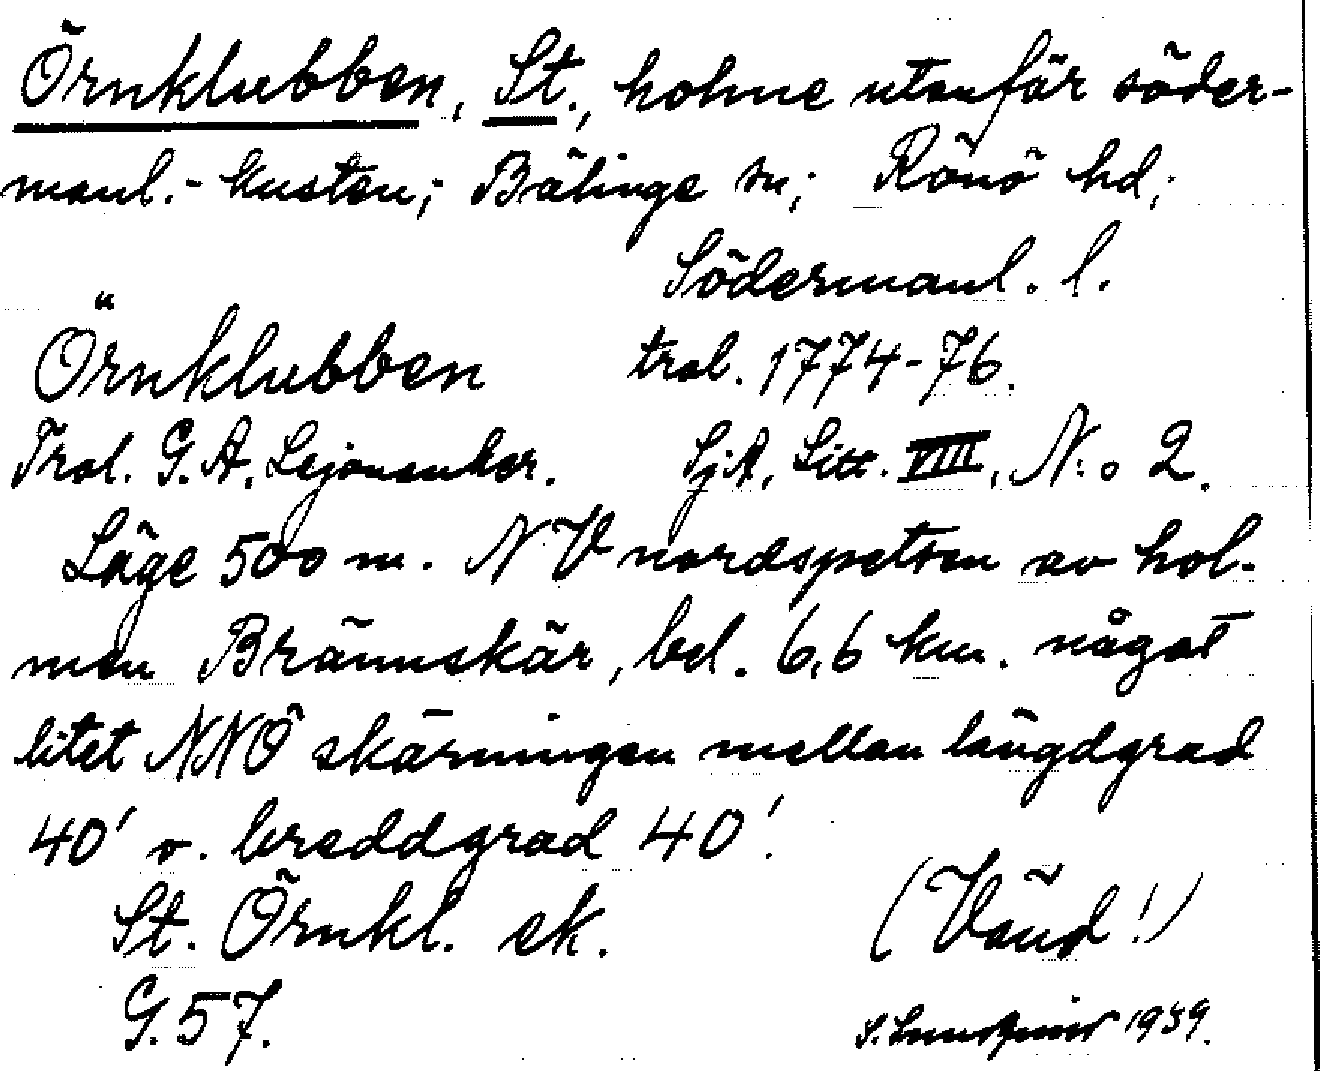 Örnklubben, St., holme utanför söder-
manl.- kusten; Bälinge sn; Rönö hd;
Södermanl. l.
Örnklubben trol. 1774-76.
Trol. G. A. Lejonanker. SjA, Litt. VIII, N:o 2.
Läge 500 m. NV nordspetsen av hol-
men Brännskär, bel. 6,6 km. något
litet NNÖ skärningen mellan längdgrad
40' o. breddgrad 40'.
St. Örnkl. ek. (Vänd!)
G. 57. 1939.